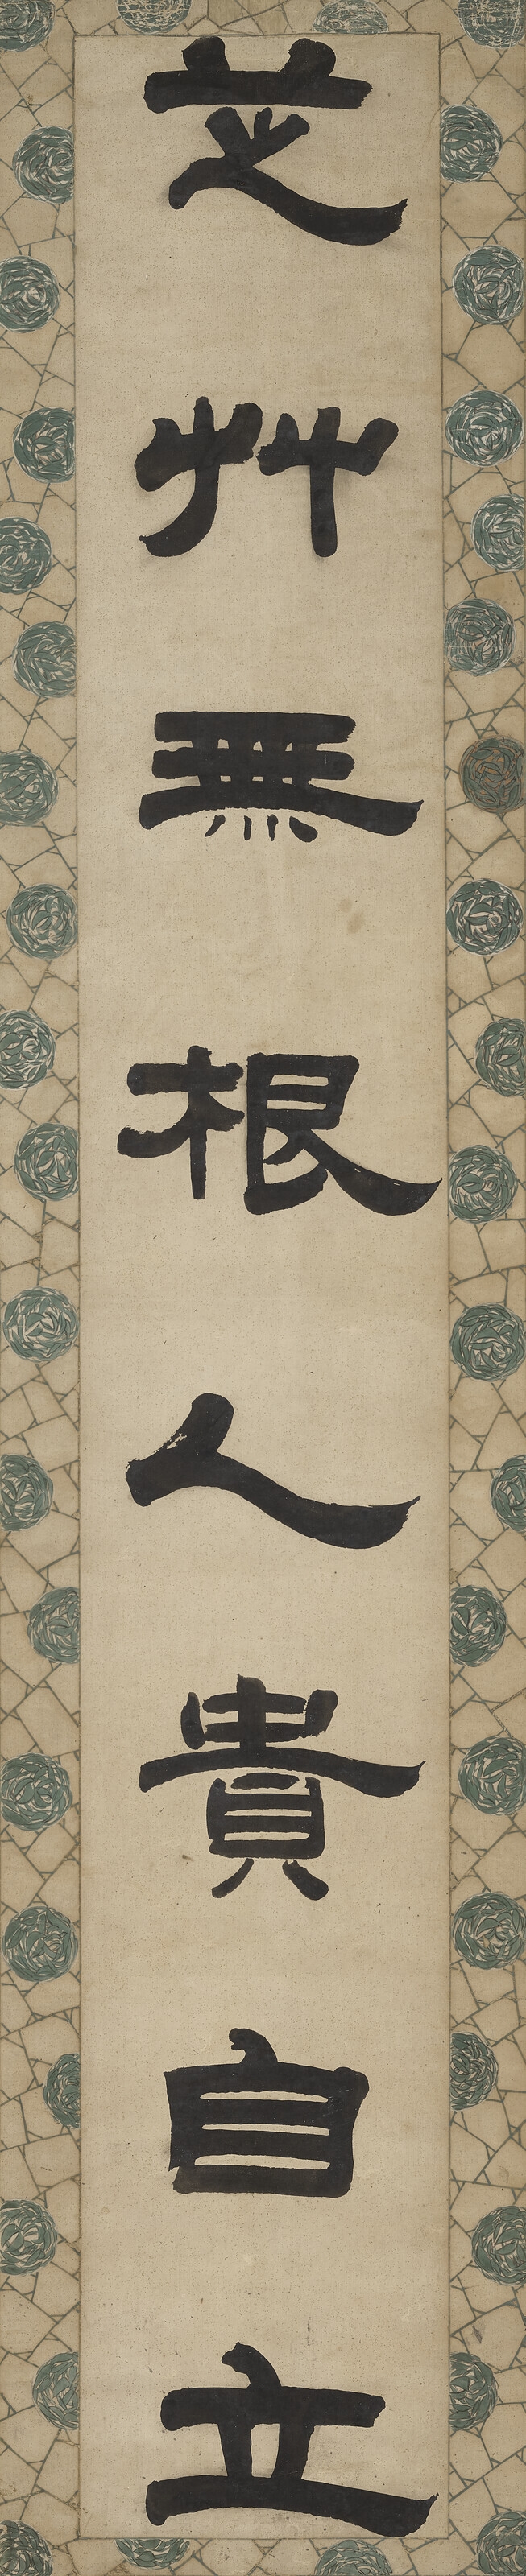 芝艸無根人貴自立